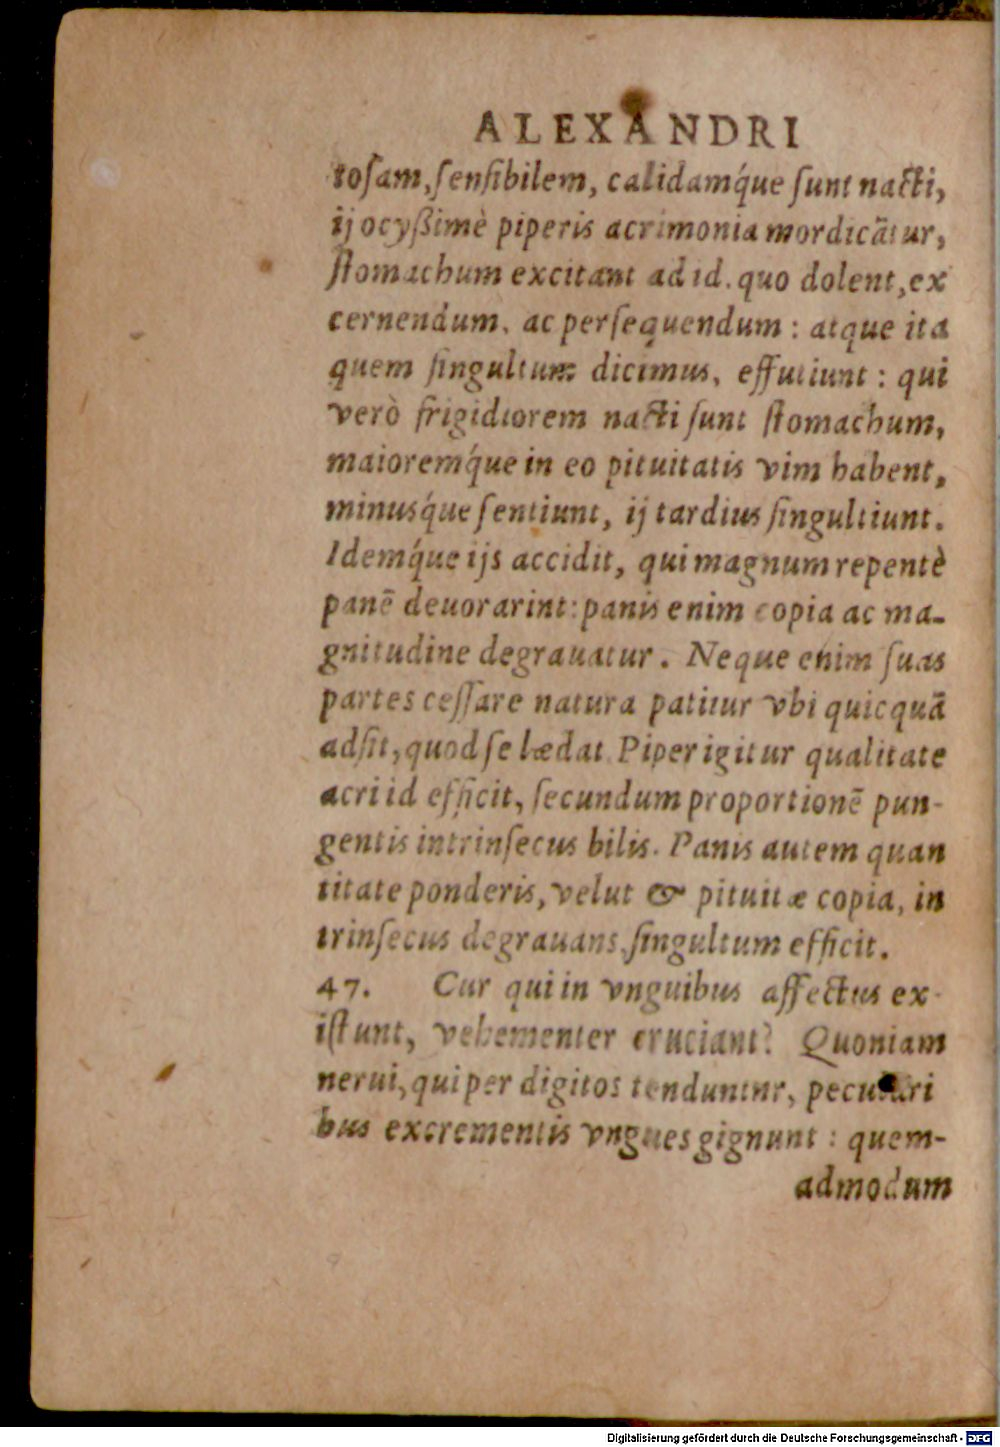 ALEXANDRI
toſam, ſenſibilem, calidamq́ue ſunt nacti,
ij ocyßimè piperis acrimonia mordicātur,
ſtomachum excitant ad id. quo dolent, ex
cernendum, ac perſequendum : atque ita
quem ſingultum dicimus, effutiunt : qui
verò frigidiorem nacti ſunt ſtomachum,
maioremq́ue in eo pituitatis vim habent,
minusq́ue ſentiunt, ij tardius ſingultiunt.
Idemq́ue ijs accidit, qui magnum repentè
panē deuorarint: panis enim copia ac ma-
gnitudine degrauatur. Neque enim ſuas
partes ceſſare natura patitur vbi quicquā
adſit, quod ſe lædat. Piper igitur qualitate
acri id efficit, ſecundum proportionē pun-
gentis intrinſecus bilis. Panis autem quan
titate ponderis, velut & pituitæ copia, in
trinſecus degrauans, ſingultum efficit.
47. Cur qui in vnguibus affectus ex-
iſtunt, vehementer cruciant? Quoniam
nerui, qui per digitos tenduntur, peculiari
bus excrementis vngues gignunt : quem-
admodum
Digitalisierung gefördert durch die Deutsche Forschungsgemeinschaft - DFG